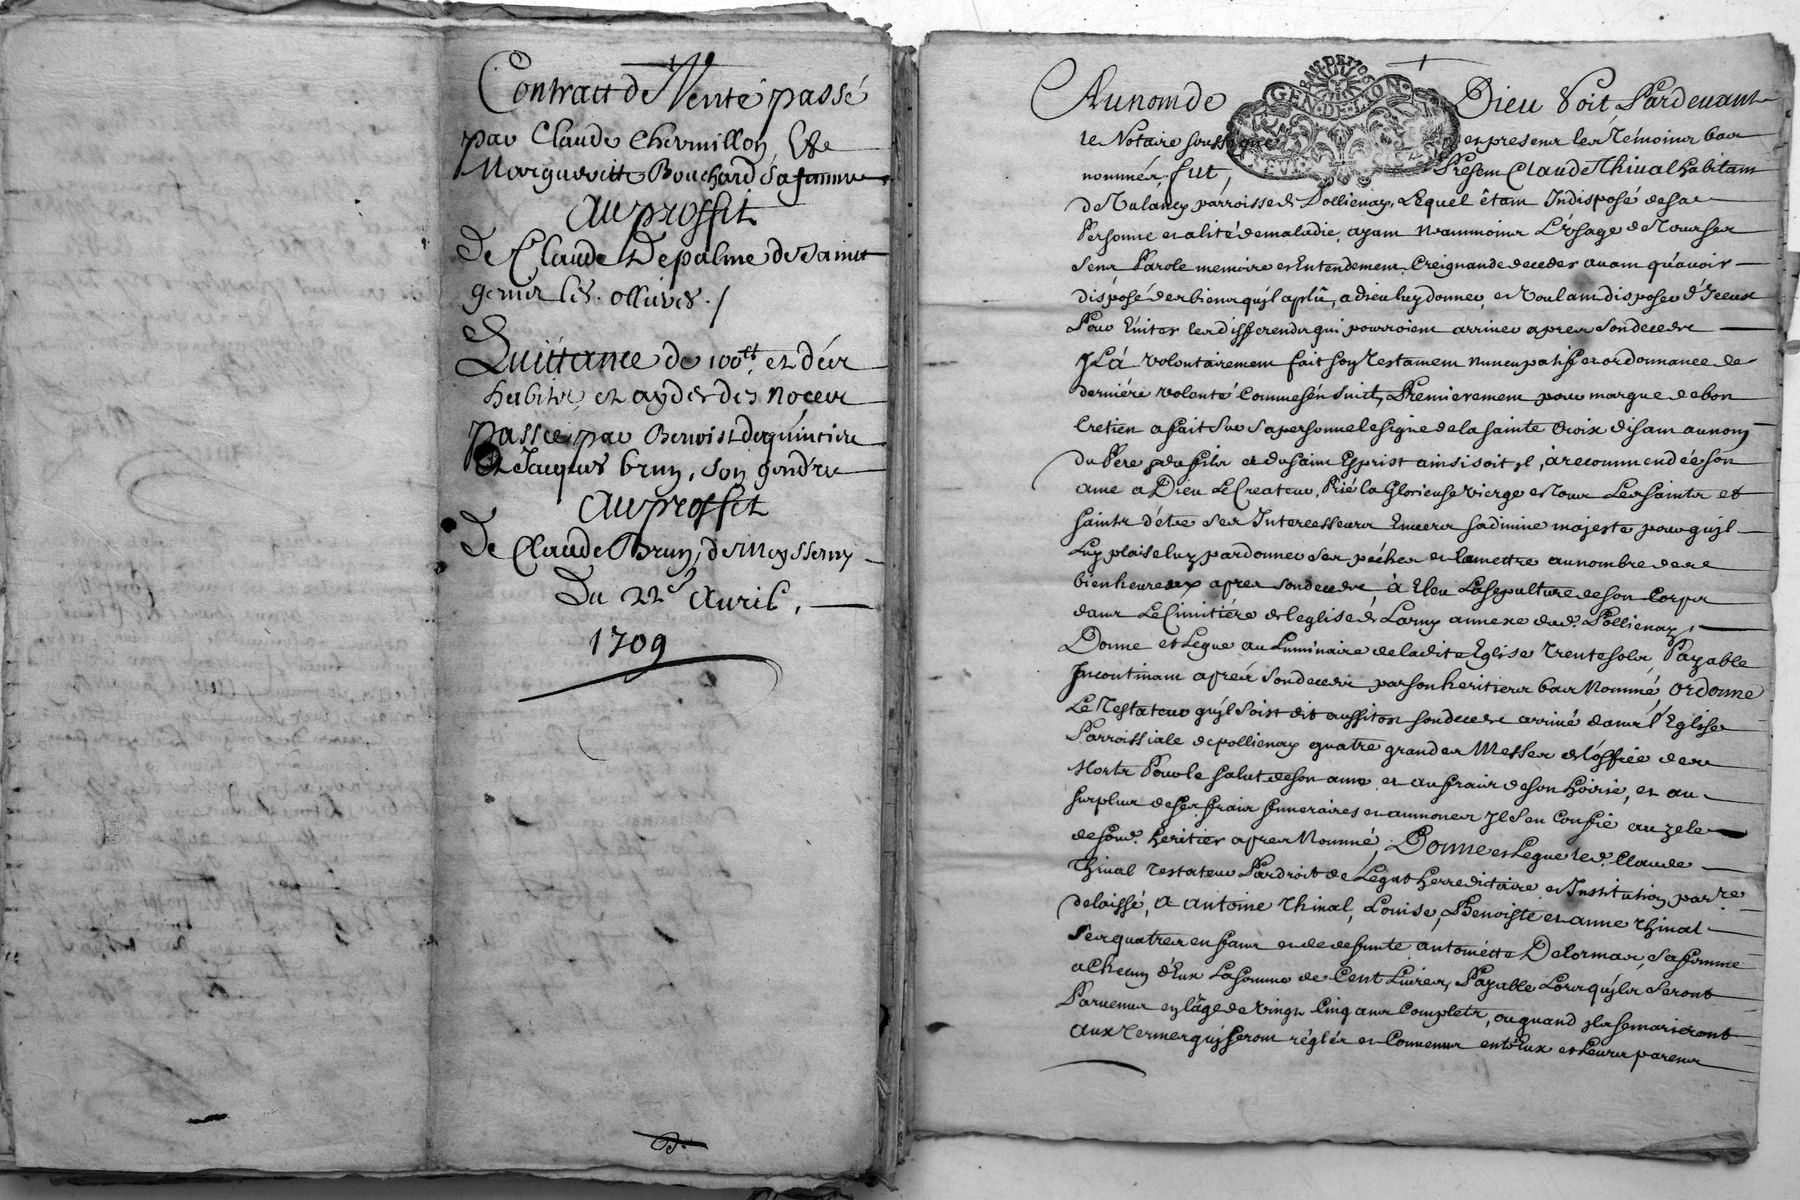 Contract de Vente passé
par Claude Chermillon &
Margueritte Bouchard sa femme
Au proffit
De Claude Depalme de Saint
genis les ollieres
Quittance de 100 tt et des
habits et ayde des noces
passée par Benoist dequincieu
Et Jacques brun, son gendre
Au proffit
De Claude Brun, de
Du 22e Auril,
1709
GEN·DE·LYON
Au nom de Dieu Soit Pardeuant
le Notaire soussigné et en presence les Témoins bas
nommés, fut, Present Claude Thiual habitant
de parroisse de Pollienay, Lequel êtant Indisposé de sa
Personne et alité de maladie, ayant neammoins L'vsage de tous ses
sens Parole memoire et Entendement, Creignant de deceder auant qu'auoir
disposé des biens qu'jl a plû, a dieu luy donner, et Voulant disposer d'Jceux
Pour Euiter les differends qui pourroient arriuer apres son decedz
Jl á volontairement fait son Testament nuncupatif et ordonnance de
derniére volonté Comme s'en suit, Premierement pour marque de bon
Cretien a fait Sur Sa personne le signe de la sainte Croix disant au nom
du Pere du fils et du saint Esprit ainsi soit jl, à recommendée son
ame a Dieu Le Createur, Prié la Glorieuse vierge et tous Les saints et
saintes d'être Ses Intercesseurs Enuers sa diuine majesté pour qu'jl
Luy plaise luy pardonner Ses péchés et la mettre au nombre des
bienheureux apres son decedz à Eleu La sepulture de son Corps
dans Le Cimitiére de l'eglise de Larny annexe dud. Pollienay,
Donne et Legue au Luminaire de ladite Eglise trente sols, Payable
Jncontinant aprés son decedz par son heritiere bas Nommé, ordonne
Le Testateur qu'jl soit dit aussitost son decedz arriué dans l'Eglise
Parroissiale de pollienay quatre grandes Messes de l'office des
Morts Pour le salut de son ame et au frais de son hoirie, et au
surplus de ses frais funeraires et aumones Jl s'en Confie au zele
de sond. heritier apres Nommé, Donne et Legue led. Claude
Thiual testateur Par droit de Legat herredictaire et Institution par re
delaissé, a antoine Thiual, Louise, Benoiste et anne thiual
Ses quatres enfans et de deffunte antoinette Delormas, Sa femme
a Chacun d'Eux La somme de Cent Liures, Payable Lors qu'jls seront
Paruenus en l'âge de vingt Cinq ans Complets, ou quand jls se marieront
aux termes qu'j seront réglés et Conuenus entr'Eux et Leurs parens